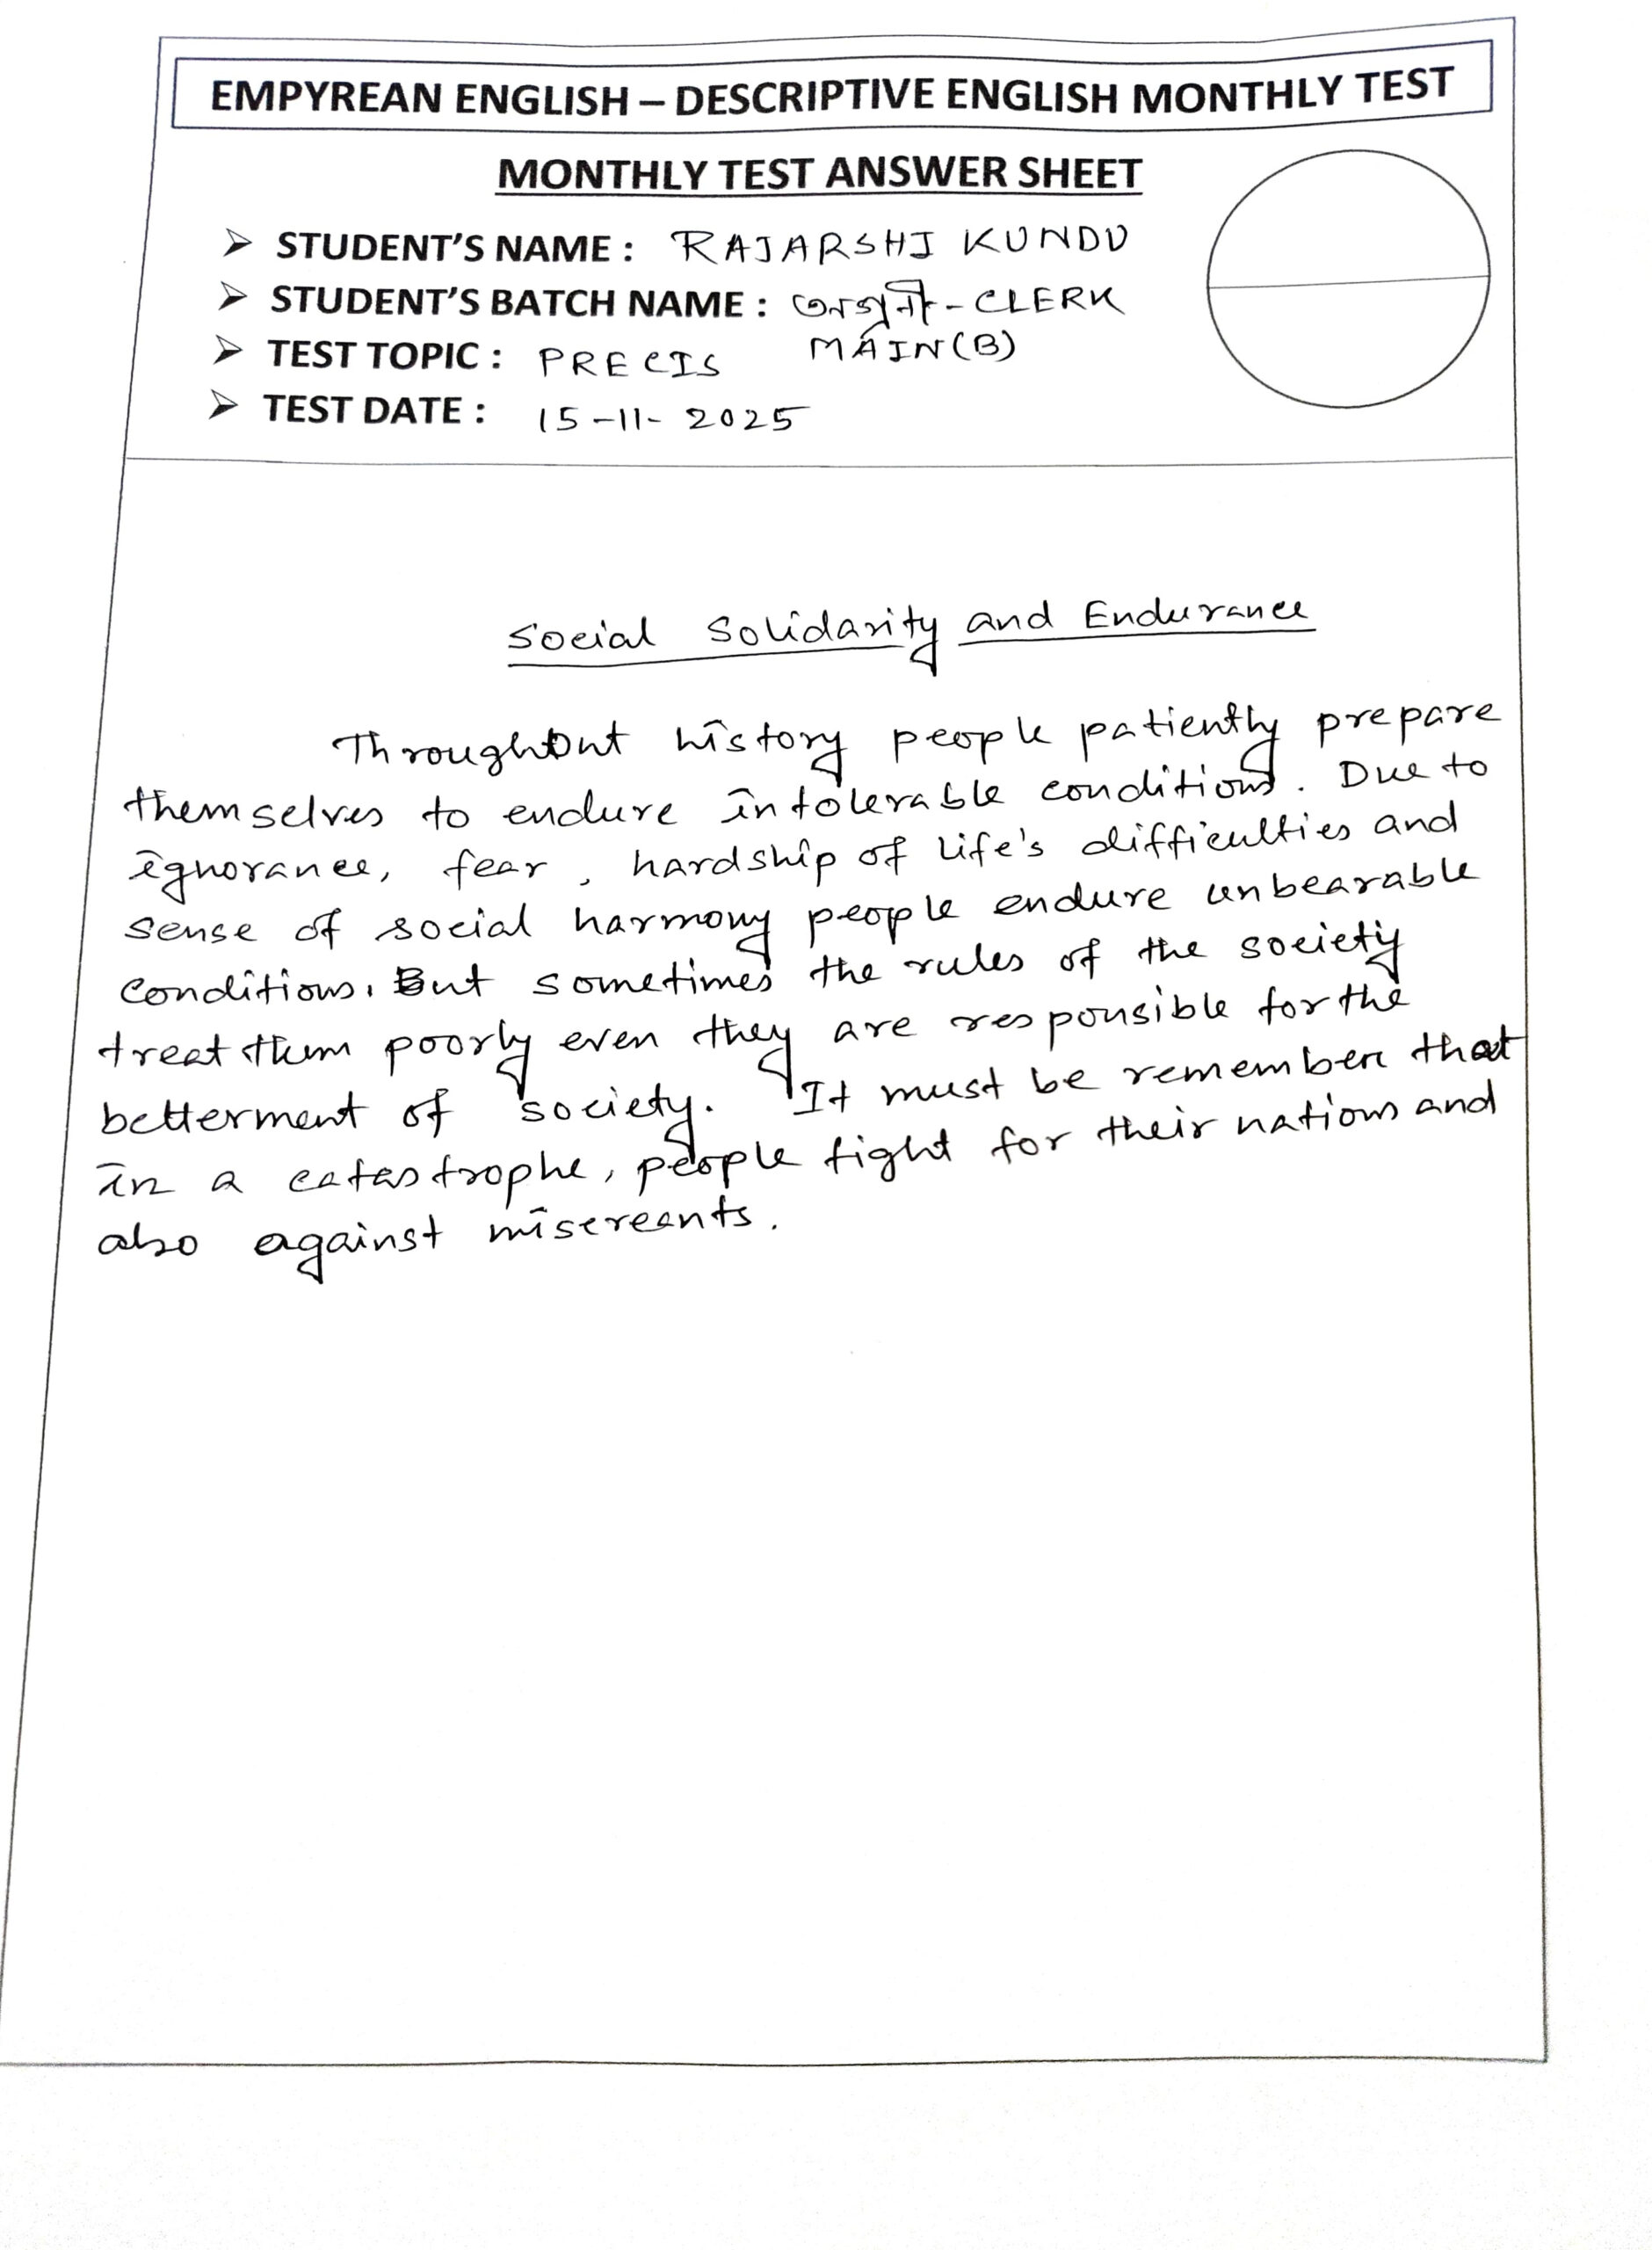 EMPYREAN ENGLISH – DESCRIPTIVE ENGLISH MONTHLY TEST
MONTHLY TEST ANSWER SHEET
➢ STUDENT'S NAME : RAJARSHI KUNDU
➢ STUDENT'S BATCH NAME : - CLERK
MAIN (B)
➢ TEST TOPIC : PRECIS
➢ TEST DATE : 15-11-2025
Social Solidarity and Endurance
Throughout history people patiently prepare
themselves to endure intolerable conditions. Due to
ignorance, fear, hardship of life's difficulties and
sense of social harmony people endure unbearable
conditions. But sometimes the rules of the society
treat them poorly even they are responsible for the
betterment of society. It must be remember that
in a catastrophe, people fight for their nations and
also against miscreants.